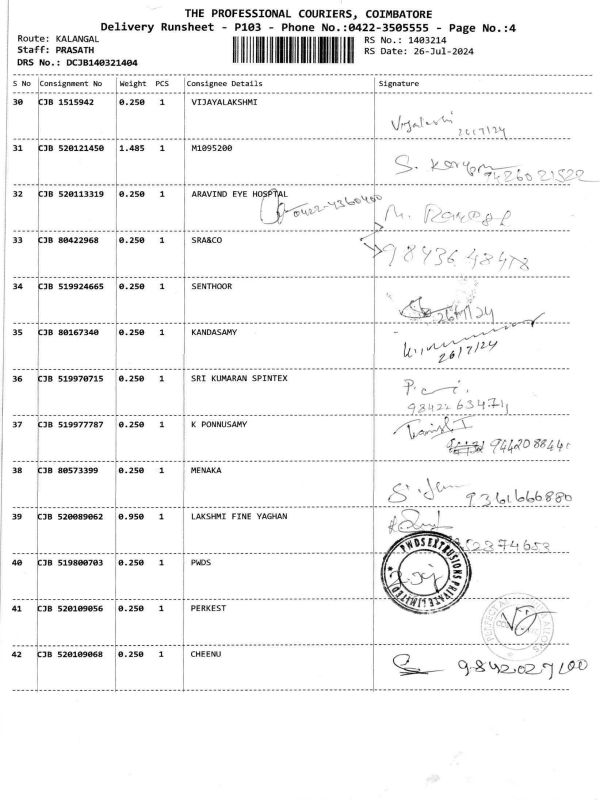 THE PROFESSIONAL COURIERS, COIMBATORE
Delivery Runsheet - P103 - Phone No.:0422-3505555 - Page No.:4
Route: KALANGAL
RS No.: 1403214
Staff: PRASATH
RS Date: 26-Jul-2024
DRS No.: DCJB140321404
S No Consignment No Weight PCS Consignee Details Signature
30 CJB 1515942 0.250 1 VIJAYALAKSHMI
26/7/24
31 CJB 520121450 1.485 1 M1095200
S.
32 CJB 520113319 0.250 1 ARAVIND EYE HOSPTAL
0422-4360400
M.
33 CJB 80422968 0.250 1 SRA&CO
34 CJB 519924665 0.250 1 SENTHOOR
26/7/24
35 CJB 80167340 0.250 1 KANDASAMY
26/7/24
36 CJB 519970715 0.250 1 SRI KUMARAN SPINTEX
37 CJB 519977787 0.250 1 K PONNUSAMY
38 CJB 80573399 0.250 1 MENAKA
9361666880
39 CJB 520089062 0.950 1 LAKSHMI FINE YAGHAN
40 CJB 519800703 0.250 1 PWDS
PWDS EXTRUSIONS PRIVATE LIMITED
41 CJB 520109056 0.250 1 PERKEST
42 CJB 520109068 0.250 1 CHEENU
9842027100